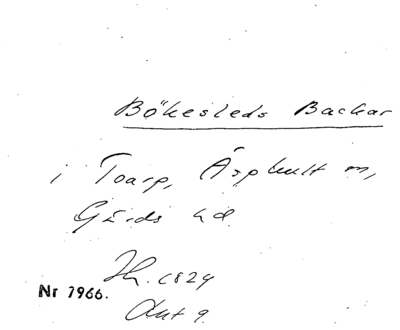 Bökesleds Backar
i Toarp, Äsphult m,
Gärds hd
Nr 7966.
Ant 9.